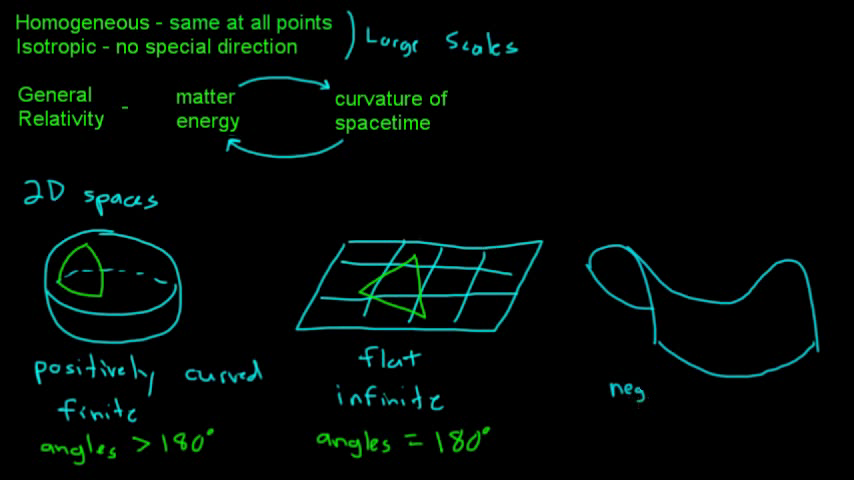 Homogeneous - same at all points
Isotropic - no special direction
Large Scales
General Relativity - matter energy
curvature of spacetime
2D spaces
positively curved
finite
angles > 180°
flat
infinite
angles = 180°
neg